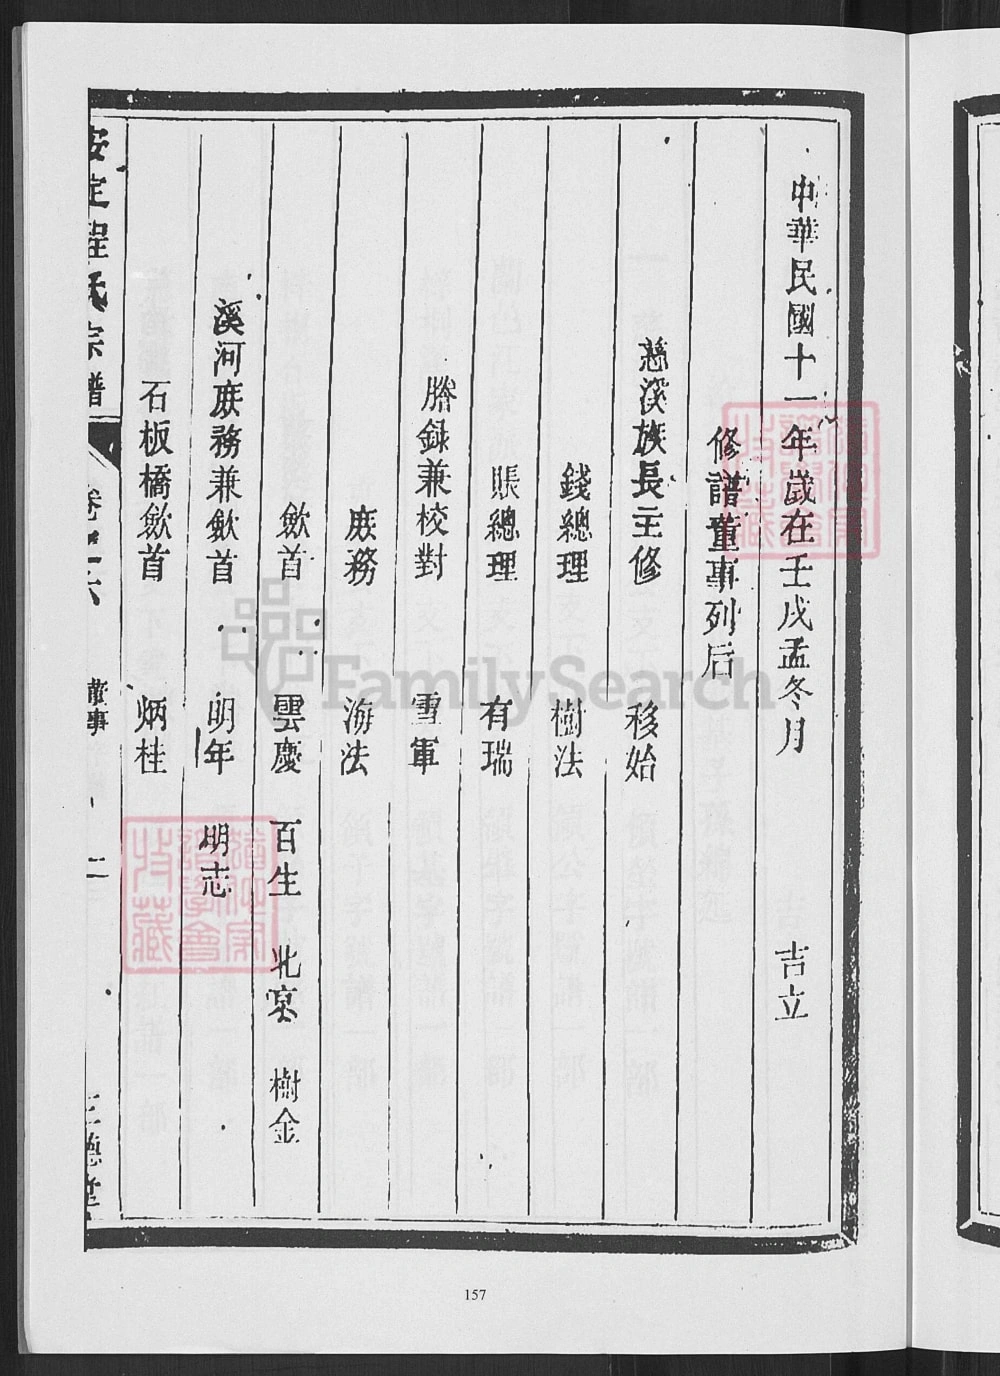 中華民國十一年歲在壬戌孟冬月 吉立
修譜董事列后
慈溪族長主修 移始
錢總理 樹法
賬總理 有瑞
謄録兼校對 雪軍
庶務 海法
歛首 雲慶 百生 北京 樹金
溪河庶務兼歛首 明年 明志
石板橋歛首 炳桂
安定程氏宗譜 卷之六 董事 二 三德堂
FamilySearch
157